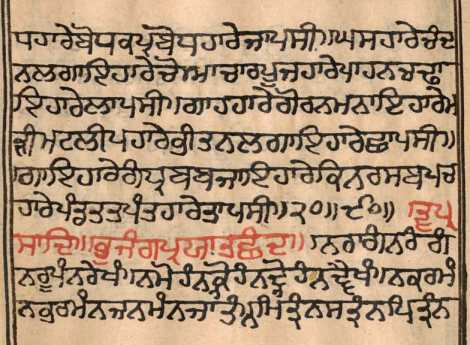 ਪਹਾਰੇਬੋਧਕਪ੍ਰਬੋਧਹਾਰੇਜਾਪਸੀ॥ਘਸਹਾਰੇਚੰਦ
ਨਲਗਾਇਹਾਰੇਚੋਆਚਾਰਪੂਜਹਾਰੇਪਾਹਨਚਢਾ
ਇਹਾਰੇਲਾਪਸੀ॥ਗਾਹਹਾਰੇਗੋਰਨਮਨਾਇਹਾਰੇਮ
ੜੀਮਟਲੀਪਹਾਰੇਭੀਤਨਲਗਾਇਹਾਰੇਛਾਪਸੀ॥
ਗਾਇਹਾਰੇਗੰਧ੍ਰਬਬਜਾਇਹਾਰੇਕਿਨਰਸਬਪਚ
ਹਾਰੇਪੰਡਤਤਪੰਤਹਾਰੇਤਾਪਸੀ॥੨੦॥੯੦॥ ਤ੍ਵਪ੍ਰ
ਸਾਦਿ॥ਭੁਜੰਗਪ੍ਰਯਾਤਛੰਦ॥ਨਰਾਗੰਨਰੰਗੰ
ਨਰੂਪੰਨਰੇਖੰ॥ਨਮੋਹੰਨਕ੍ਰੋਹੰਨਦ੍ਰੋਹੰਨਦ੍ਵੈਖੰ॥ਨਕਰਮੰ
ਨਭਰਮੰਨਜਨਮੰਨਜਾਤੰ॥ਨਮਿਤ੍ਰੰਨਸਤ੍ਰੰਨਪਿਤ੍ਰੰਨ